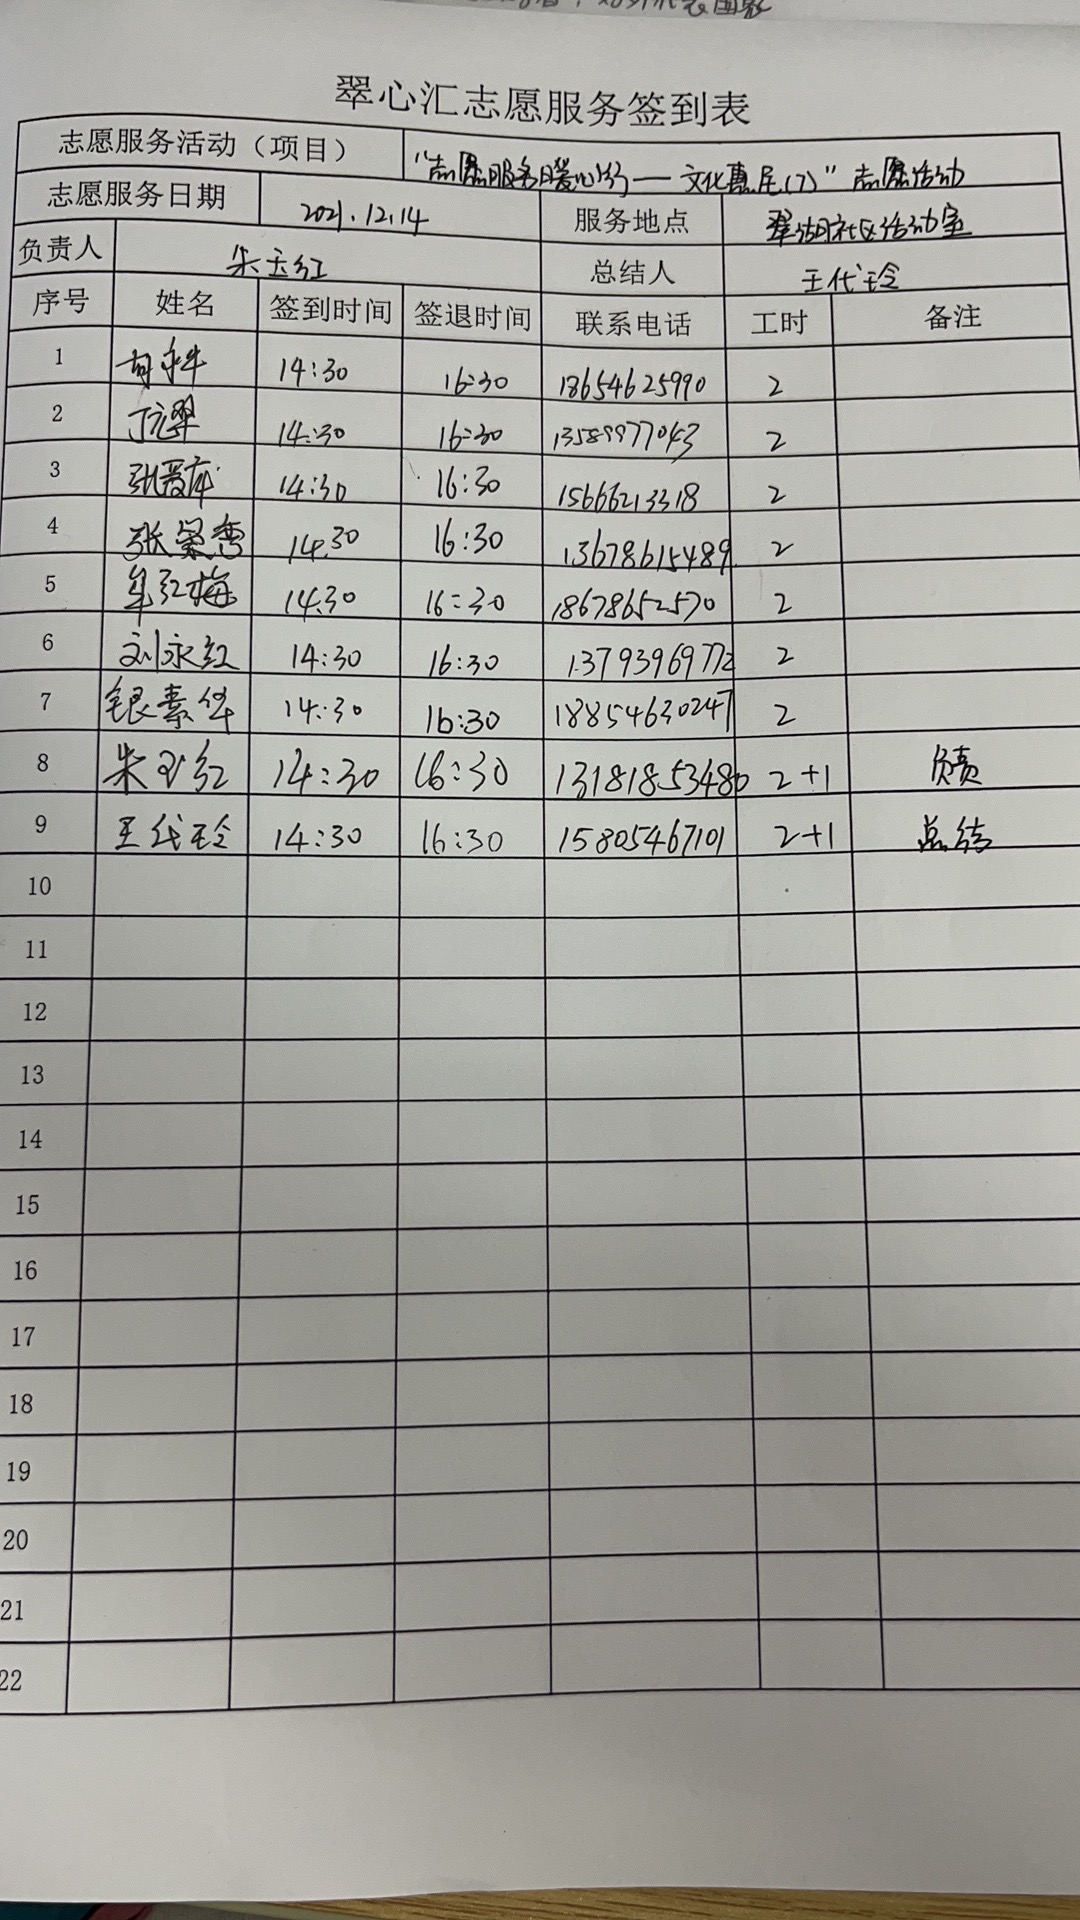 翠心汇志愿服务签到表
志愿服务活动（项目） “志愿服务暖心行—文化惠民(7)”志愿活动
志愿服务日期 2021.12.14 服务地点 翠湖社区活动室
负责人 朱玉红 总结人 王代玲
序号 姓名 签到时间 签退时间 联系电话 工时 备注
1 14:30 16:30 18654625990 2
2 14:30 16:30 13589977043 2
3 张爱萍 14:30 16:30 15666213318 2
4 张荣香 14:30 16:30 13678615489 2
5 牟红梅 14:30 16:30 18678652570 2
6 刘永红 14:30 16:30 13793969772 2
7 银素华 14:30 16:30 18854630247 2
8 朱玉红 14:30 16:30 13181853480 2+1 负责
9 王代玲 14:30 16:30 15805467101 2+1 总结
10
11
12
13
14
15
16
17
18
19
20
21
22